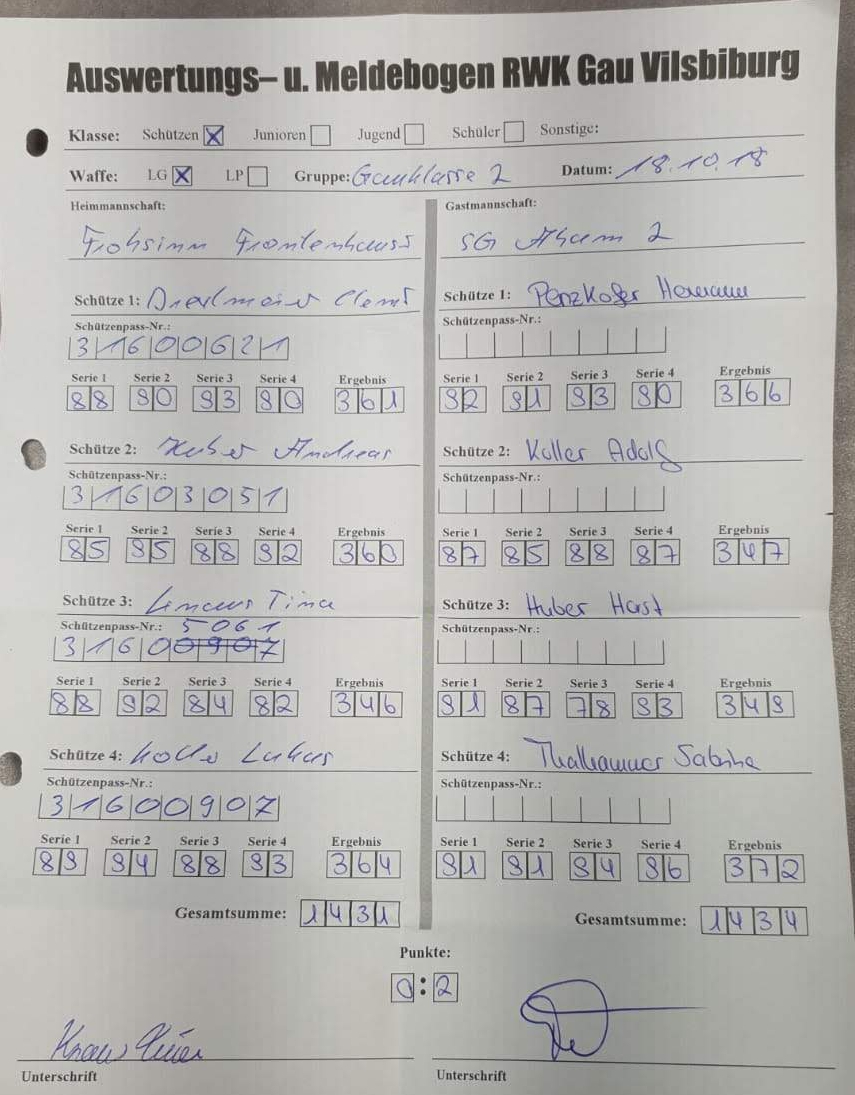 Auswertungs- u. Meldebogen RWK Gau Vilsbiburg
Klasse: Schützen X Junioren Jugend Schüler Sonstige:
Waffe: LG X LP Gruppe: Gauklasse 2 Datum: 18.10.18
Heimmannschaft: Gastmannschaft:
Frohsinn SG Aham 2
Schütze 1: Schütze 1: Penzkofer Hermann
Schützenpass-Nr.: Schützenpass-Nr.:
31600621
Serie 1 Serie 2 Serie 3 Serie 4 Ergebnis Serie 1 Serie 2 Serie 3 Serie 4 Ergebnis
88 90 93 90 361 92 91 93 90 366
Schütze 2: Huber Andreas Schütze 2: Koller Adolf
Schützenpass-Nr.: Schützenpass-Nr.:
31603051
Serie 1 Serie 2 Serie 3 Serie 4 Ergebnis Serie 1 Serie 2 Serie 3 Serie 4 Ergebnis
85 95 88 92 360 87 85 88 87 347
Schütze 3: Tina Schütze 3: Huber Horst
Schützenpass-Nr.: 5061 Schützenpass-Nr.:
31600907
Serie 1 Serie 2 Serie 3 Serie 4 Ergebnis Serie 1 Serie 2 Serie 3 Serie 4 Ergebnis
88 92 84 82 346 91 87 78 93 349
Schütze 4: Lukas Schütze 4: Thalhammer Sabrina
Schützenpass-Nr.: Schützenpass-Nr.:
31600907
Serie 1 Serie 2 Serie 3 Serie 4 Ergebnis Serie 1 Serie 2 Serie 3 Serie 4 Ergebnis
89 94 88 93 364 91 91 94 96 372
Gesamtsumme: 1431 Gesamtsumme: 1434
Punkte:
0:2
Unterschrift Unterschrift